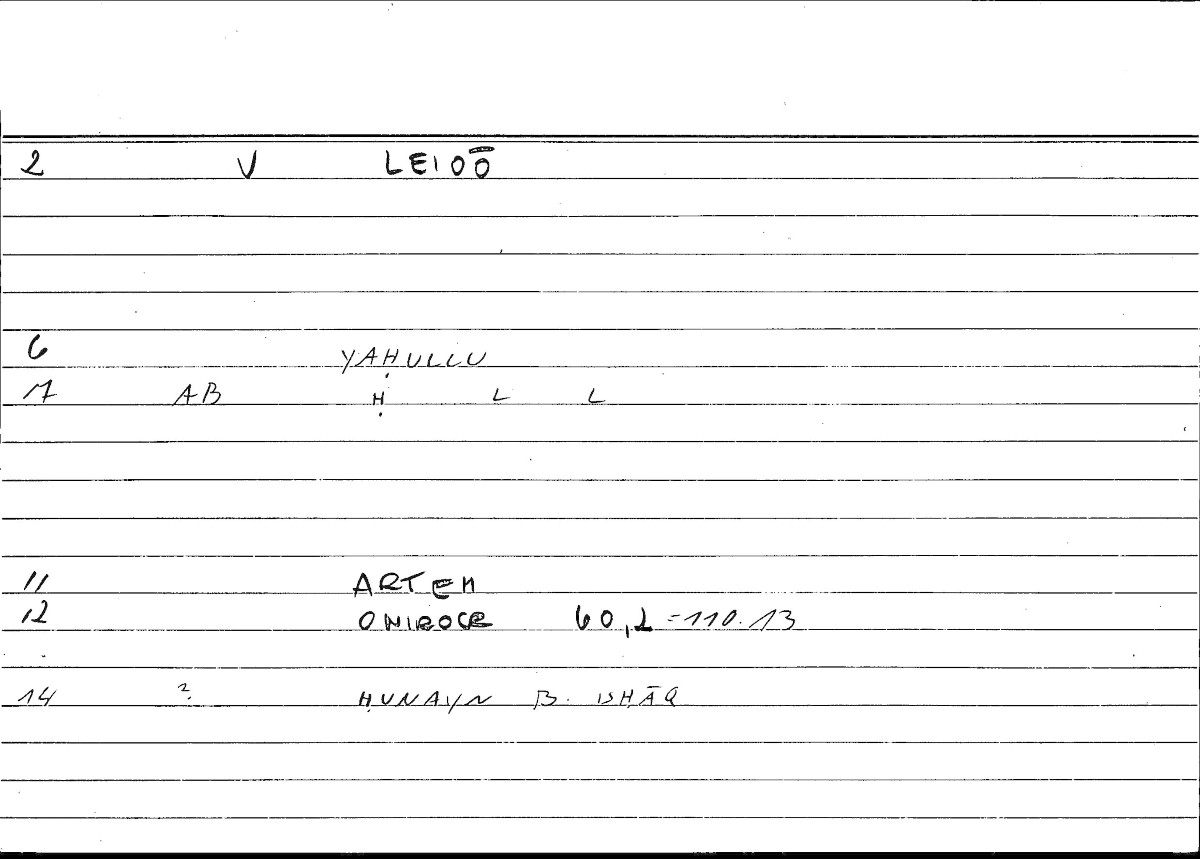 2 V LEIOŌ
6 YAḤULLU
7 AB Ḥ L L
11 ARTEM
12 ONIROCR 60,2=110.13
14 ? ḤUNAYN B. ISḤĀQ